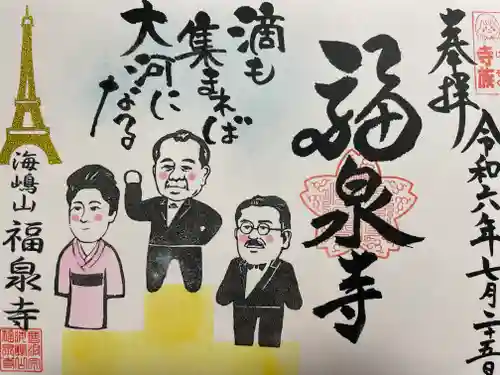 奉拝
令和六年七月二十五日
福泉寺
滴も
集まれば
大河に
なる
海嶋山 福泉寺